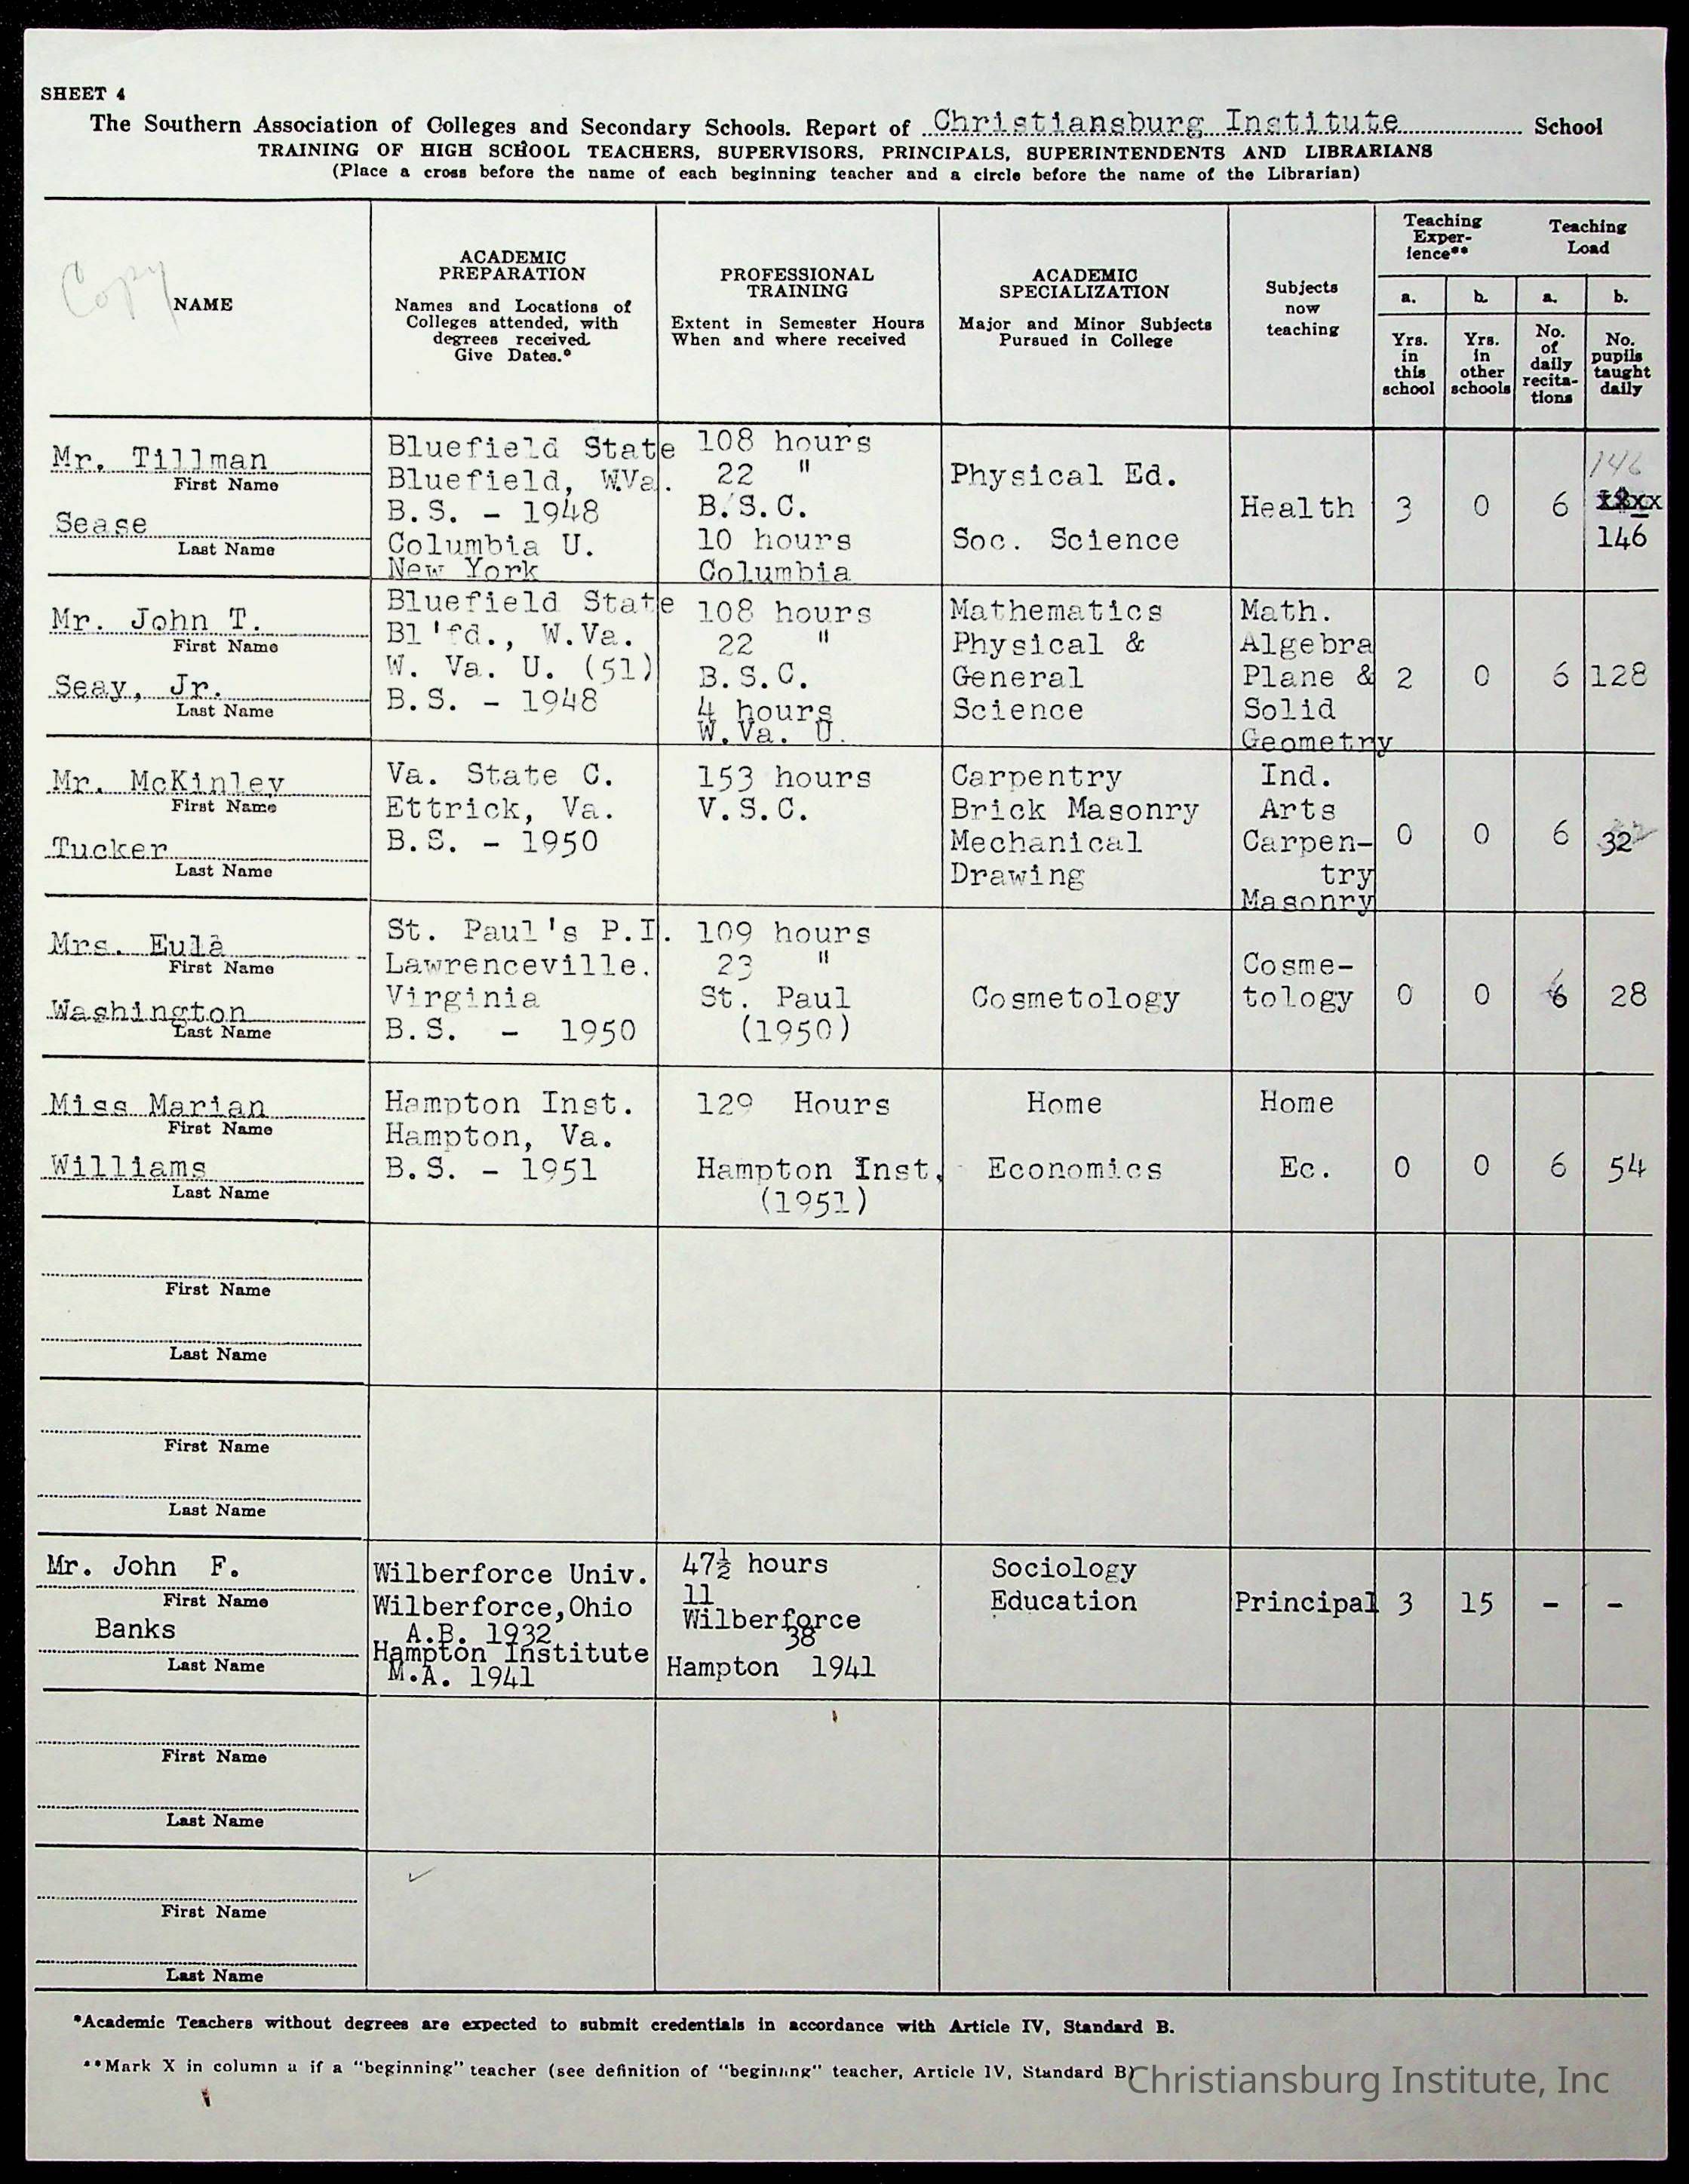 SHEET 4
The Southern Association of Colleges and Secondary Schools. Report of Christiansburg Institute School
TRAINING OF HIGH SCHOOL TEACHERS, SUPERVISORS, PRINCIPALS, SUPERINTENDENTS AND LIBRARIANS
(Place a cross before the name of each beginning teacher and a circle before the name of the Librarian)
Copy
NAME
ACADEMIC
PREPARATION
Names and Locations of
Colleges attended, with
degrees received.
Give Dates.*
PROFESSIONAL
TRAINING
Extent in Semester Hours
When and where received
ACADEMIC
SPECIALIZATION
Major and Minor Subjects
Pursued in College
Subjects
now
teaching
Teaching
Exper-
ience**
a.
Yrs.
in
this
school
b.
Yrs.
in
other
schools
Teaching
Load
a.
No.
of
daily
recita-
tions
b.
No.
pupils
taught
daily
Mr. Tillman
First Name
Sease
Last Name
Bluefield State
Bluefield, W.Va.
B.S. - 1948
Columbia U.
New York
108 hours
22 "
B.S.C.
10 hours
Columbia
Physical Ed.
Soc. Science
Health
3
0
6
146
146
Mr. John T.
First Name
Seay, Jr.
Last Name
Bluefield State
Bl'fd., W.Va.
W. Va. U. (51)
B.S. - 1948
108 hours
22 "
B.S.C.
4 hours
W.Va. U.
Mathematics
Physical &
General
Science
Math.
Algebra
Plane &
Solid
Geometry
2
0
6
128
Mr. McKinley
First Name
Tucker
Last Name
Va. State C.
Ettrick, Va.
B.S. - 1950
153 hours
V.S.C.
Carpentry
Brick Masonry
Mechanical
Drawing
Ind.
Arts
Carpen-
try
Masonry
0
0
6
32
Mrs. Eula
First Name
Washington
Last Name
St. Paul's P.I.
Lawrenceville.
Virginia
B.S. - 1950
109 hours
23 "
St. Paul
(1950)
Cosmetology
Cosme-
tology
0
0
6
28
Miss Marian
First Name
Williams
Last Name
Hampton Inst.
Hampton, Va.
B.S. - 1951
129 Hours
Hampton Inst.
(1951)
Home
Economics
Home
Ec.
0
0
6
54
First Name
Last Name
First Name
Last Name
Mr. John F.
First Name
Banks
Last Name
Wilberforce Univ.
Wilberforce,Ohio
A.B. 1932
Hampton Institute
M.A. 1941
47½ hours
11
Wilberforce
38
Hampton 1941
Sociology
Education
Principal
3
15
-
-
First Name
Last Name
First Name
Last Name
*Academic Teachers without degrees are expected to submit credentials in accordance with Article IV, Standard B.
**Mark X in column a if a "beginning" teacher (see definition of "beginning" teacher, Article IV, Standard B)
Christiansburg Institute, Inc